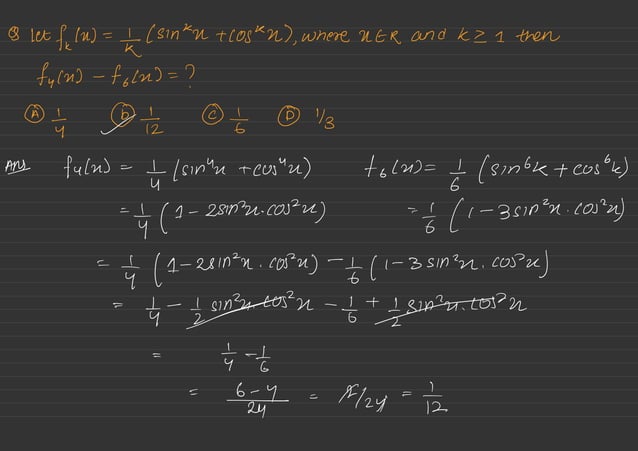 Q let fₖ(x) = 1/k (sinᵏx + cosᵏx), where x∈R and k ≥ 1 then
f₄(x) - f₆(x) = ?
Ⓐ 1/4 ⓑ 1/12 Ⓒ 1/6 Ⓓ 1/3
Ans f₄(x) = 1/4 (sin⁴x + cos⁴x) f₆(x) = 1/6 (sin⁶k + cos⁶k)
= 1/4 (1 - 2sin²x.cos²x) = 1/6 (1 - 3sin²x.cos²x)
= 1/4 (1 - 2sin²x.cos²x) - 1/6 (1 - 3sin²x.cos²x)
= 1/4 - 1/2 sin²x.cos²x - 1/6 + 1/2 sin²x.cos²x
= 1/4 - 1/6
= 6-4/24 = 2/24 = 1/12